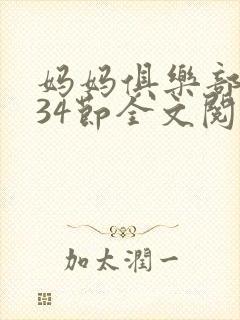 妈妈俱樂部
34節全文閱
加太潤一